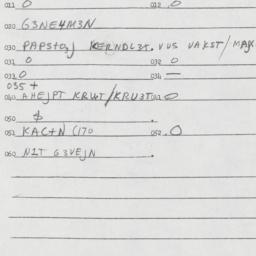 021 0 022 .0
020. G3NEUM3N
030. PAPStoj KERNDL3t. VUS VAKST/MAJK
031 0 032 0
033 0 034 —
035 +
040. AHEJPT KRUT/KRU3T 041 0
050 $ .
051 KACtN (170 052. 0
060 NIT G3VEJN .